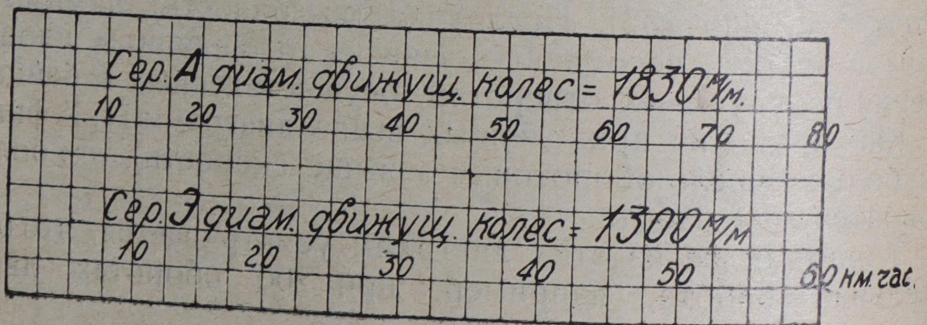 Сер. А диам. движущ. колес = 1830 м/м.
10 20 30 40 50 60 70 80
Сер. Э диам. движущ. колес = 1300 м/м
10 20 30 40 50 60 км. час.